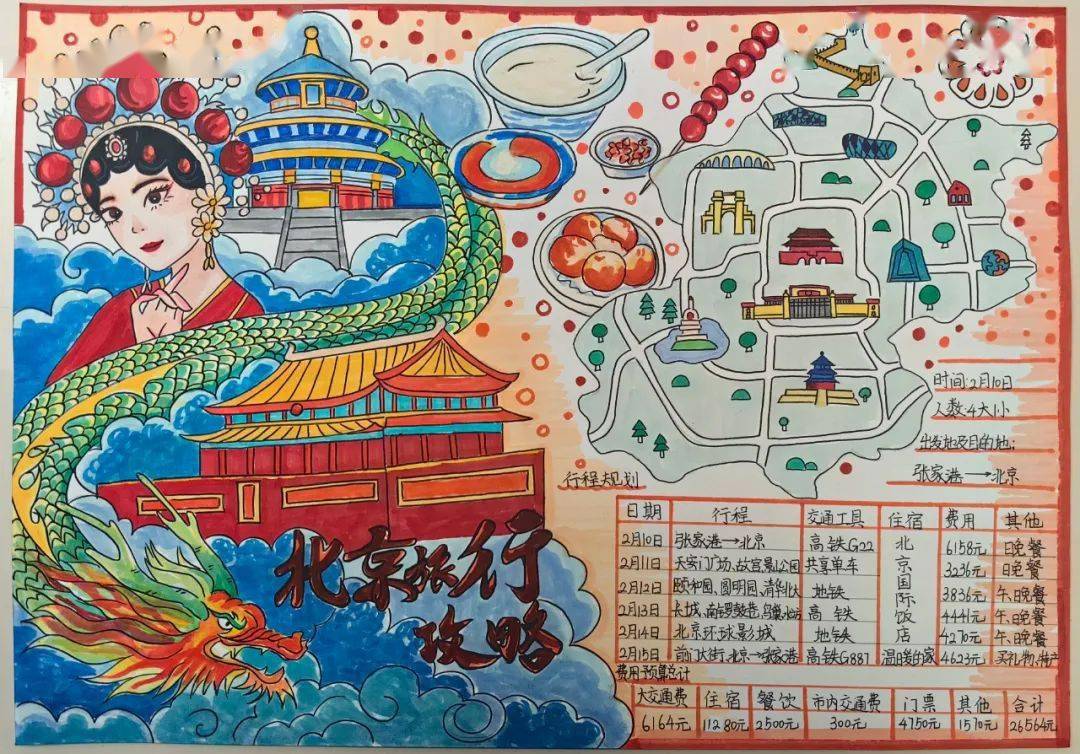 北京旅行
攻略
时间:2月10日
人数:4大1小
出发地及目的地:
张家港→北京
行程规划
日期 行程 交通工具 住宿 费用 其他
2月10日 张家港→北京 高铁G22 北京国际饭店 6158元 日晚餐
2月11日 天安门广场、故宫景山公园 共享单车 3236元 日晚餐
2月12日 颐和园、圆明园、清华北大 地铁 3836元 午、日晚餐
2月13日 长城、南锣鼓巷、鸟巢水立方 高铁 4441元 午、日晚餐
2月14日 北京环球影城 地铁 4270元 午、日晚餐
2月15日 前门大街、北京→张家港 高铁G887 温暖的家 4623元 买礼物、特产
费用预算总计
大交通费 住宿 餐饮 市内交通费 门票 其他 合计
6164元 11280元 2500元 300元 4750元 1570元 26564元